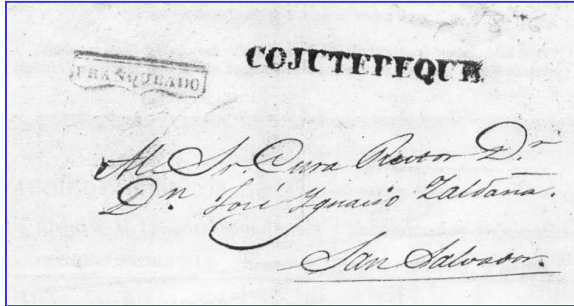 FRANQUEADO
COJUTEPEQUE
Al Sr. Cura Rector Dr.
Dn José Ygnacio Zaldaña.
San Salvador.